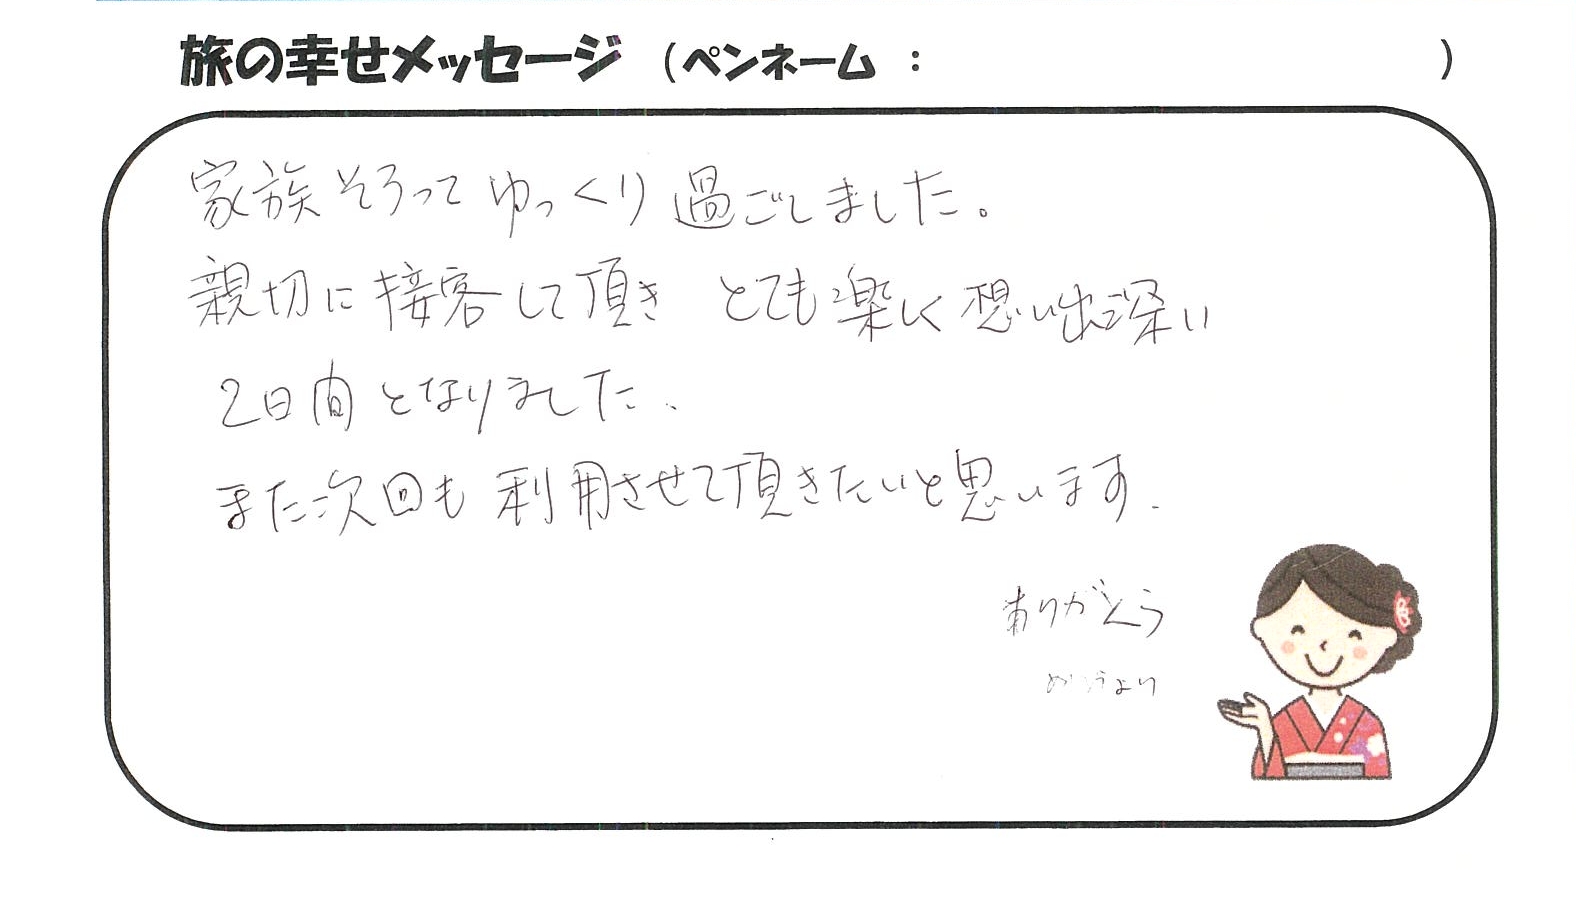 旅の幸せメッセージ (ペンネーム : )
家族そろってゆっくり過ごしました。
親切に接客して頂き とても楽しく想い出深い
2日間となりました.
また次回も利用させて頂きたいと思います.
ありがとう
より